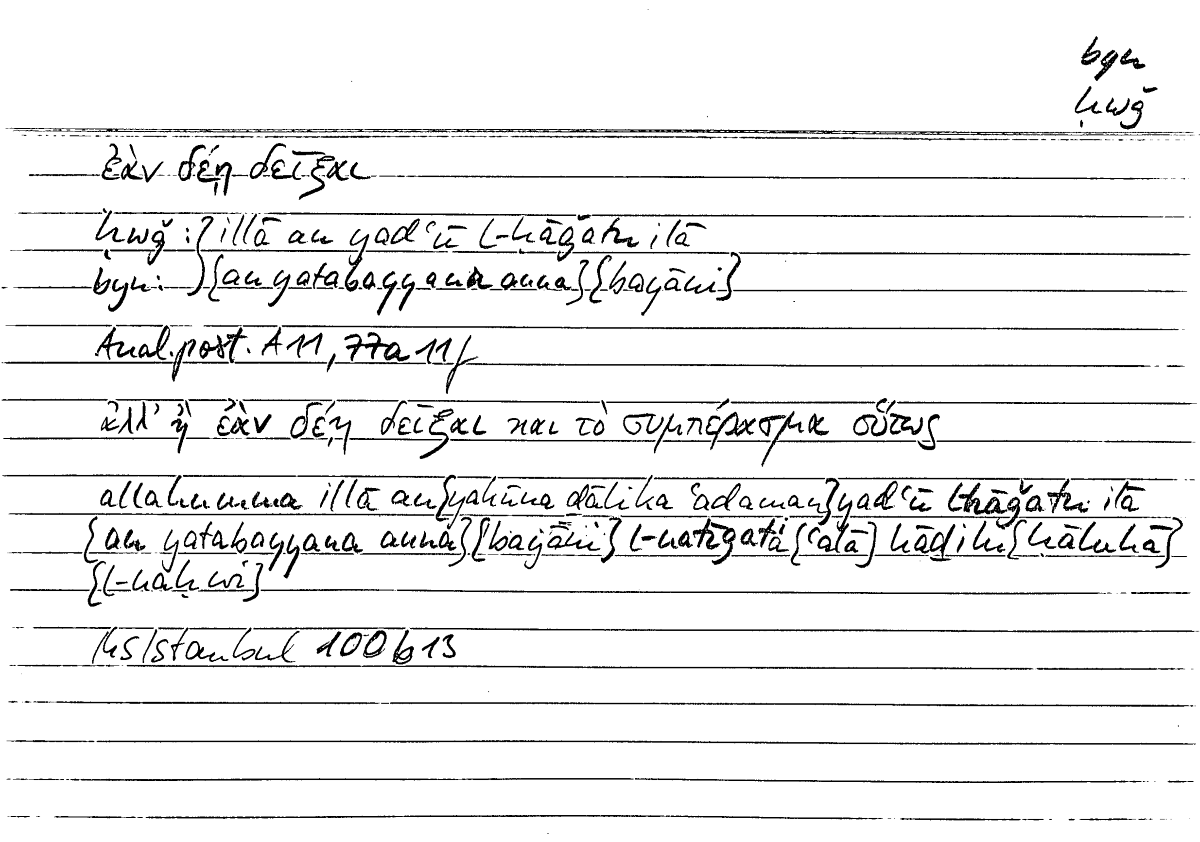 byn
ḥwǧ
ἐὰν δέῃ δεῖξαι
ḥwǧ : } illā an yadʿū l-ḥāǧatu ilā
byn: } {an yatabayyana anna} {bayāni}
Anal. post. A 11, 77a 11f
ἀλλ’ ἢ ἐὰν δέῃ δεῖξαι και τὸ συμπέρασμα οὕτως
allahumma illā an {yakūna ḏālika ʿadaman} yadʿū l-ḥāǧatu ilā
{an yatabayyana anna} {bayāni} l-natīǧati {ʿalā} hāḏihi {ḥāluhā}
{l-naḥwi}
Ms Istanbul 100b13